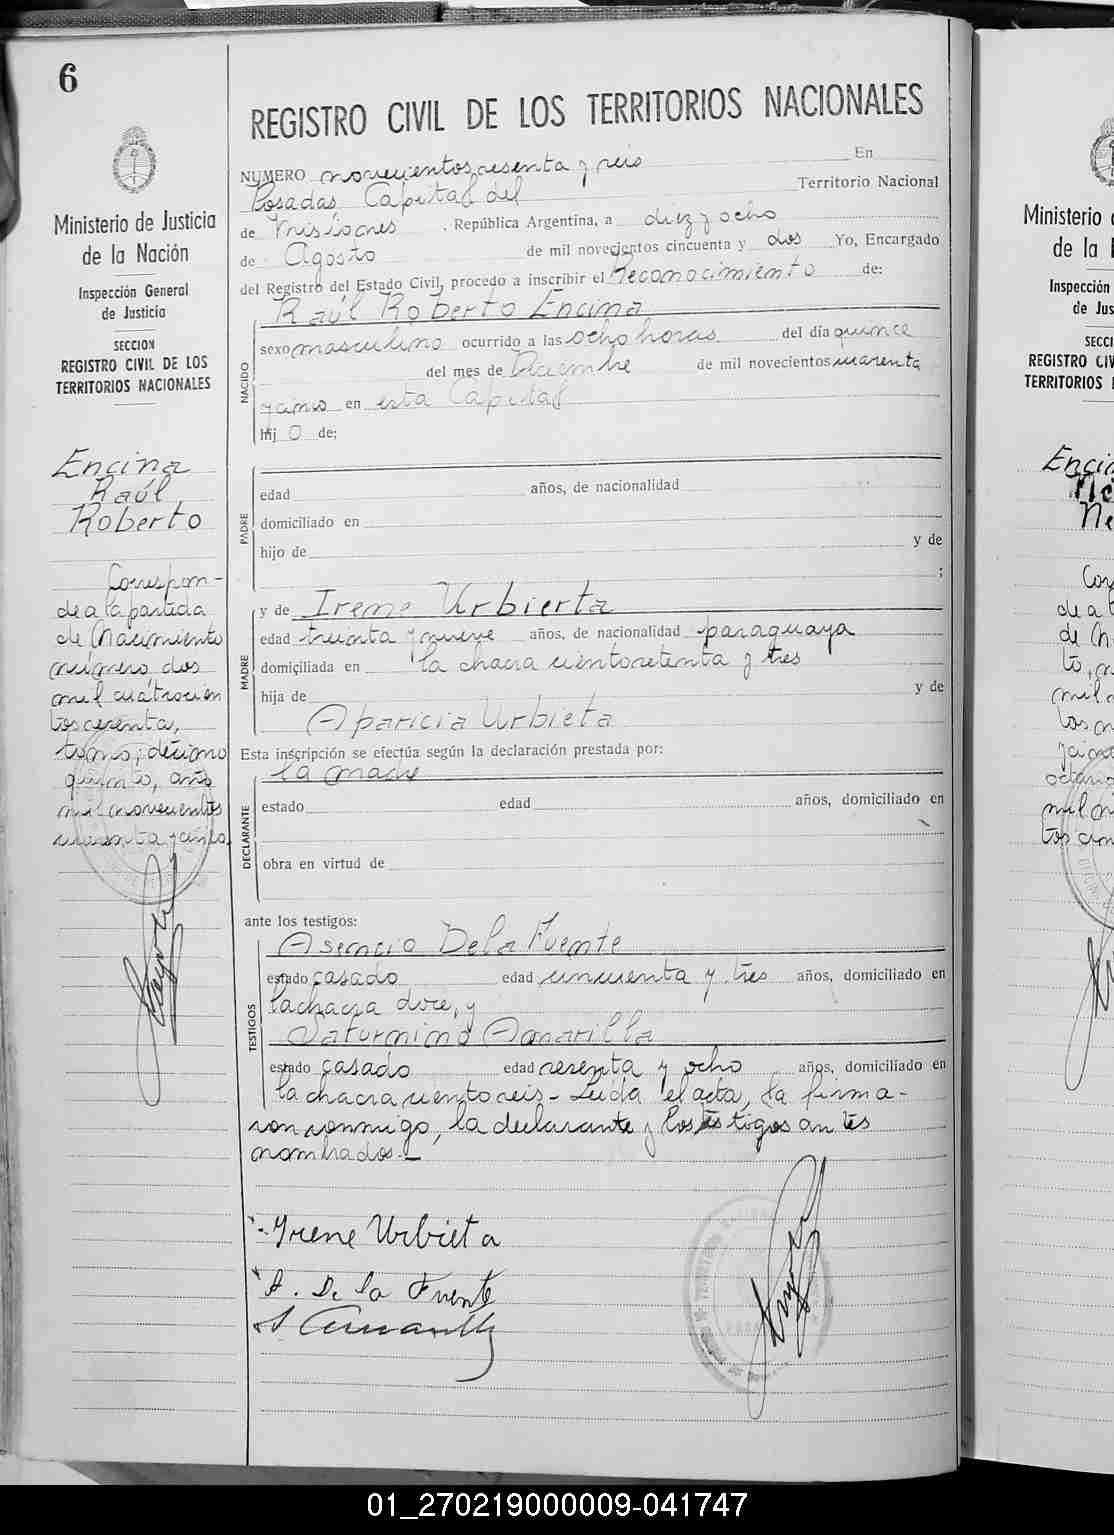 6
Ministerio de Justicia
de la Nación
Inspección General
de Justicia
SECCION
REGISTRO CIVIL DE LOS
TERRITORIOS NACIONALES
Encina
Raúl
Roberto
Correspon-
de a la partida
de Nacimiento
número, dos
mil cuatrocien
tos sesenta,
tomo; décimo
quinto, año
mil novecientos
cuarenta y cinco.
REGISTRO CIVIL DE LOS TERRITORIOS NACIONALES
NUMERO novecientos sesenta y seis En
Posadas Capital del Territorio Nacional
de Misiones . República Argentina, a diez y ocho
de Agosto de mil novecientos cincuenta y dos Yo, Encargado
del Registro del Estado Civil, procedo a inscribir el Reconocimiento de:
Raúl Roberto Encina
NACIDO
sexo masculino ocurrido a las ocho horas del día quince
del mes de Diciembre de mil novecientos cuarenta
y cinco en esta Capital
hij o de:
PADRE
edad años, de nacionalidad
domiciliado en
hijo de y de
;
MADRE
y de Irene Urbierta
edad treinta y nueve años, de nacionalidad paraguaya
domiciliada en la chacra cientosetenta y tres
hija de y de
Aparicia Urbieta
Esta inscripción se efectúa según la declaración prestada por:
la madre
DECLARANTE
estado edad años, domiciliado en
obra en virtud de
ante los testigos:
TESTIGOS
Asencio De la Fuente
estado casado edad cincuenta y tres años, domiciliado en
la chacra doce, y
Saturnino Amarilla
estado casado edad sesenta y ocho años, domiciliado en
la chacra ciento seis - Leída el acta, la firma-
ron conmigo, la declarante y los testigos antes
nombrados.-
Irene Urbieta
A. De la Fuente
S Amarilla
Ministerio
de la
Inspección
de Jus
SECCI
REGISTRO CIV
TERRITORIOS
Encin
01_270219000009-041747